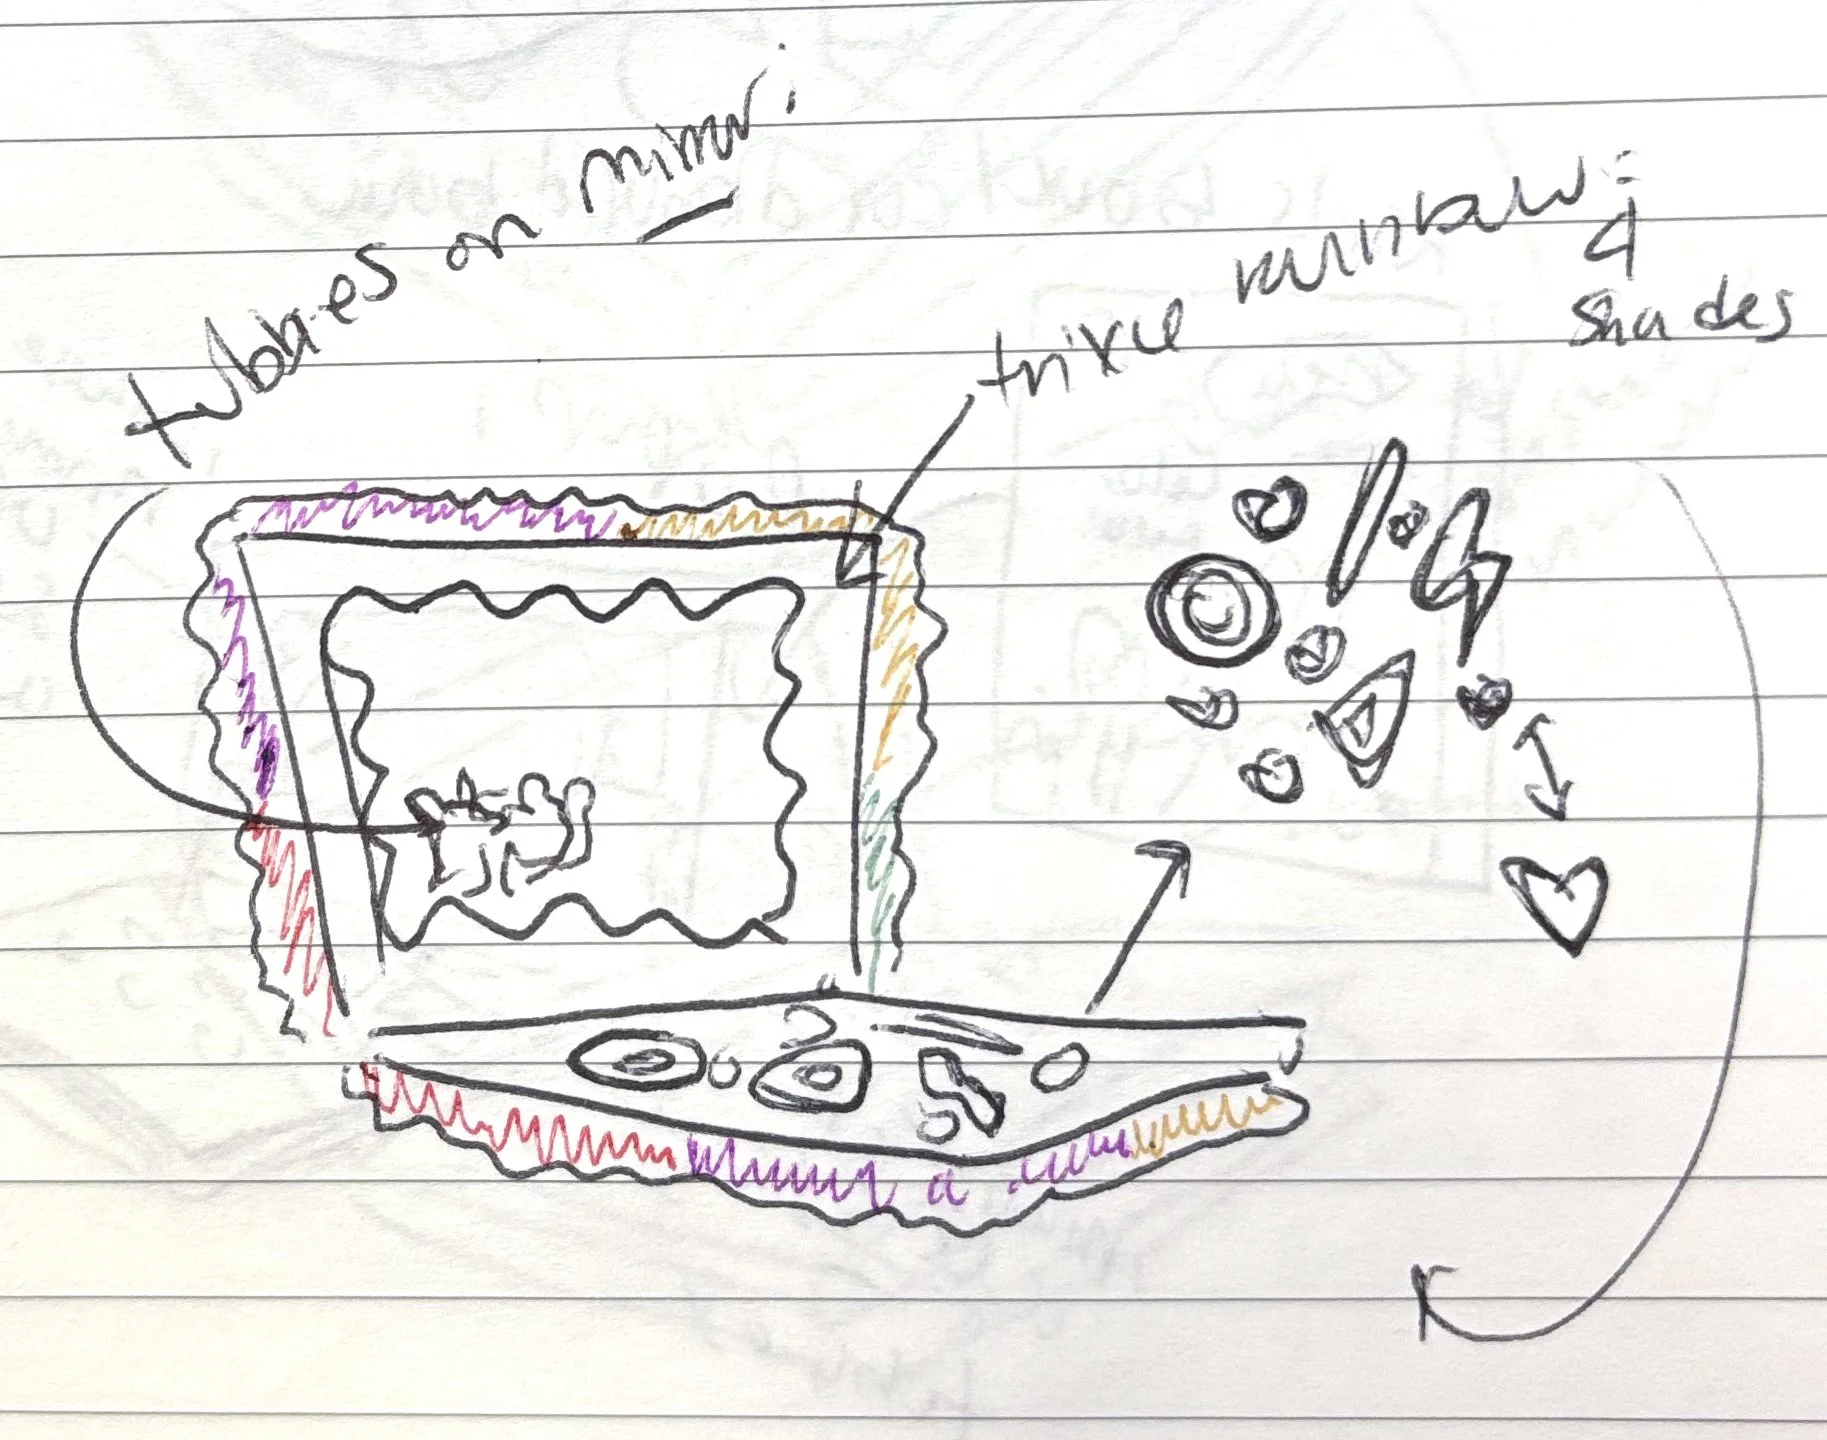 tubbies on mirror:
trixie rainbow:
4
shades